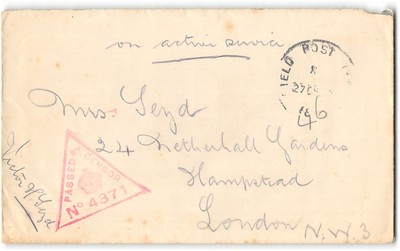 on active service
FIELD POST
27 DE
Mrs. Seyd
24 Netherhall Gardens
Hampstead
London
N.W.3
PASSED BY CENSOR
No 4371
Victor